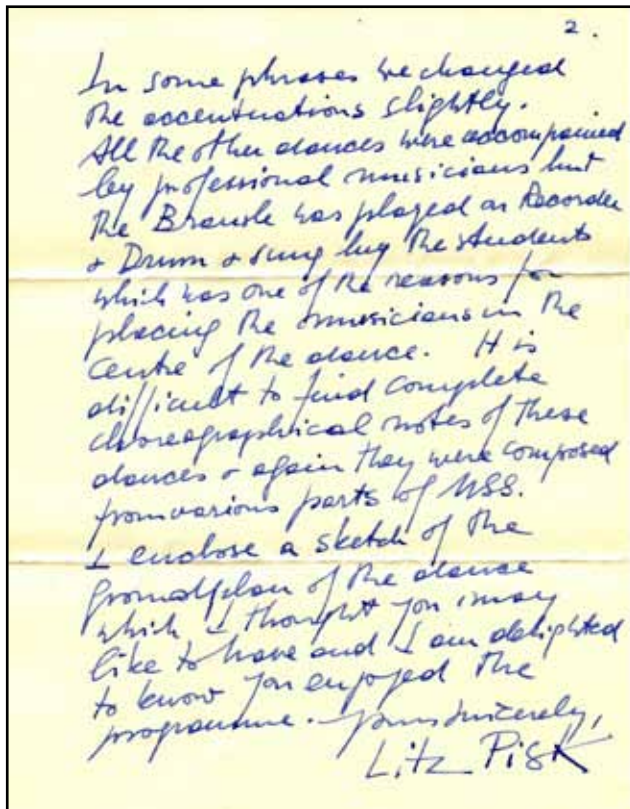 2.
In some phrases we changed
the accentuations slightly.
All the other dances were accompanied
by professional musicians but
the Bransle was played on Recorder
& Drum & sung by the students
which was one of the reasons for
placing the musicians in the
centre of the dance. It is
difficult to find complete
choreographical notes of these
dances & again they were composed
from various parts of MSS.
I enclose a sketch of the
groundplan of the dance
which I thought you may
like to have and I am delighted
to know you enjoyed the
programme. Yours sincerely,
Litz Pisk